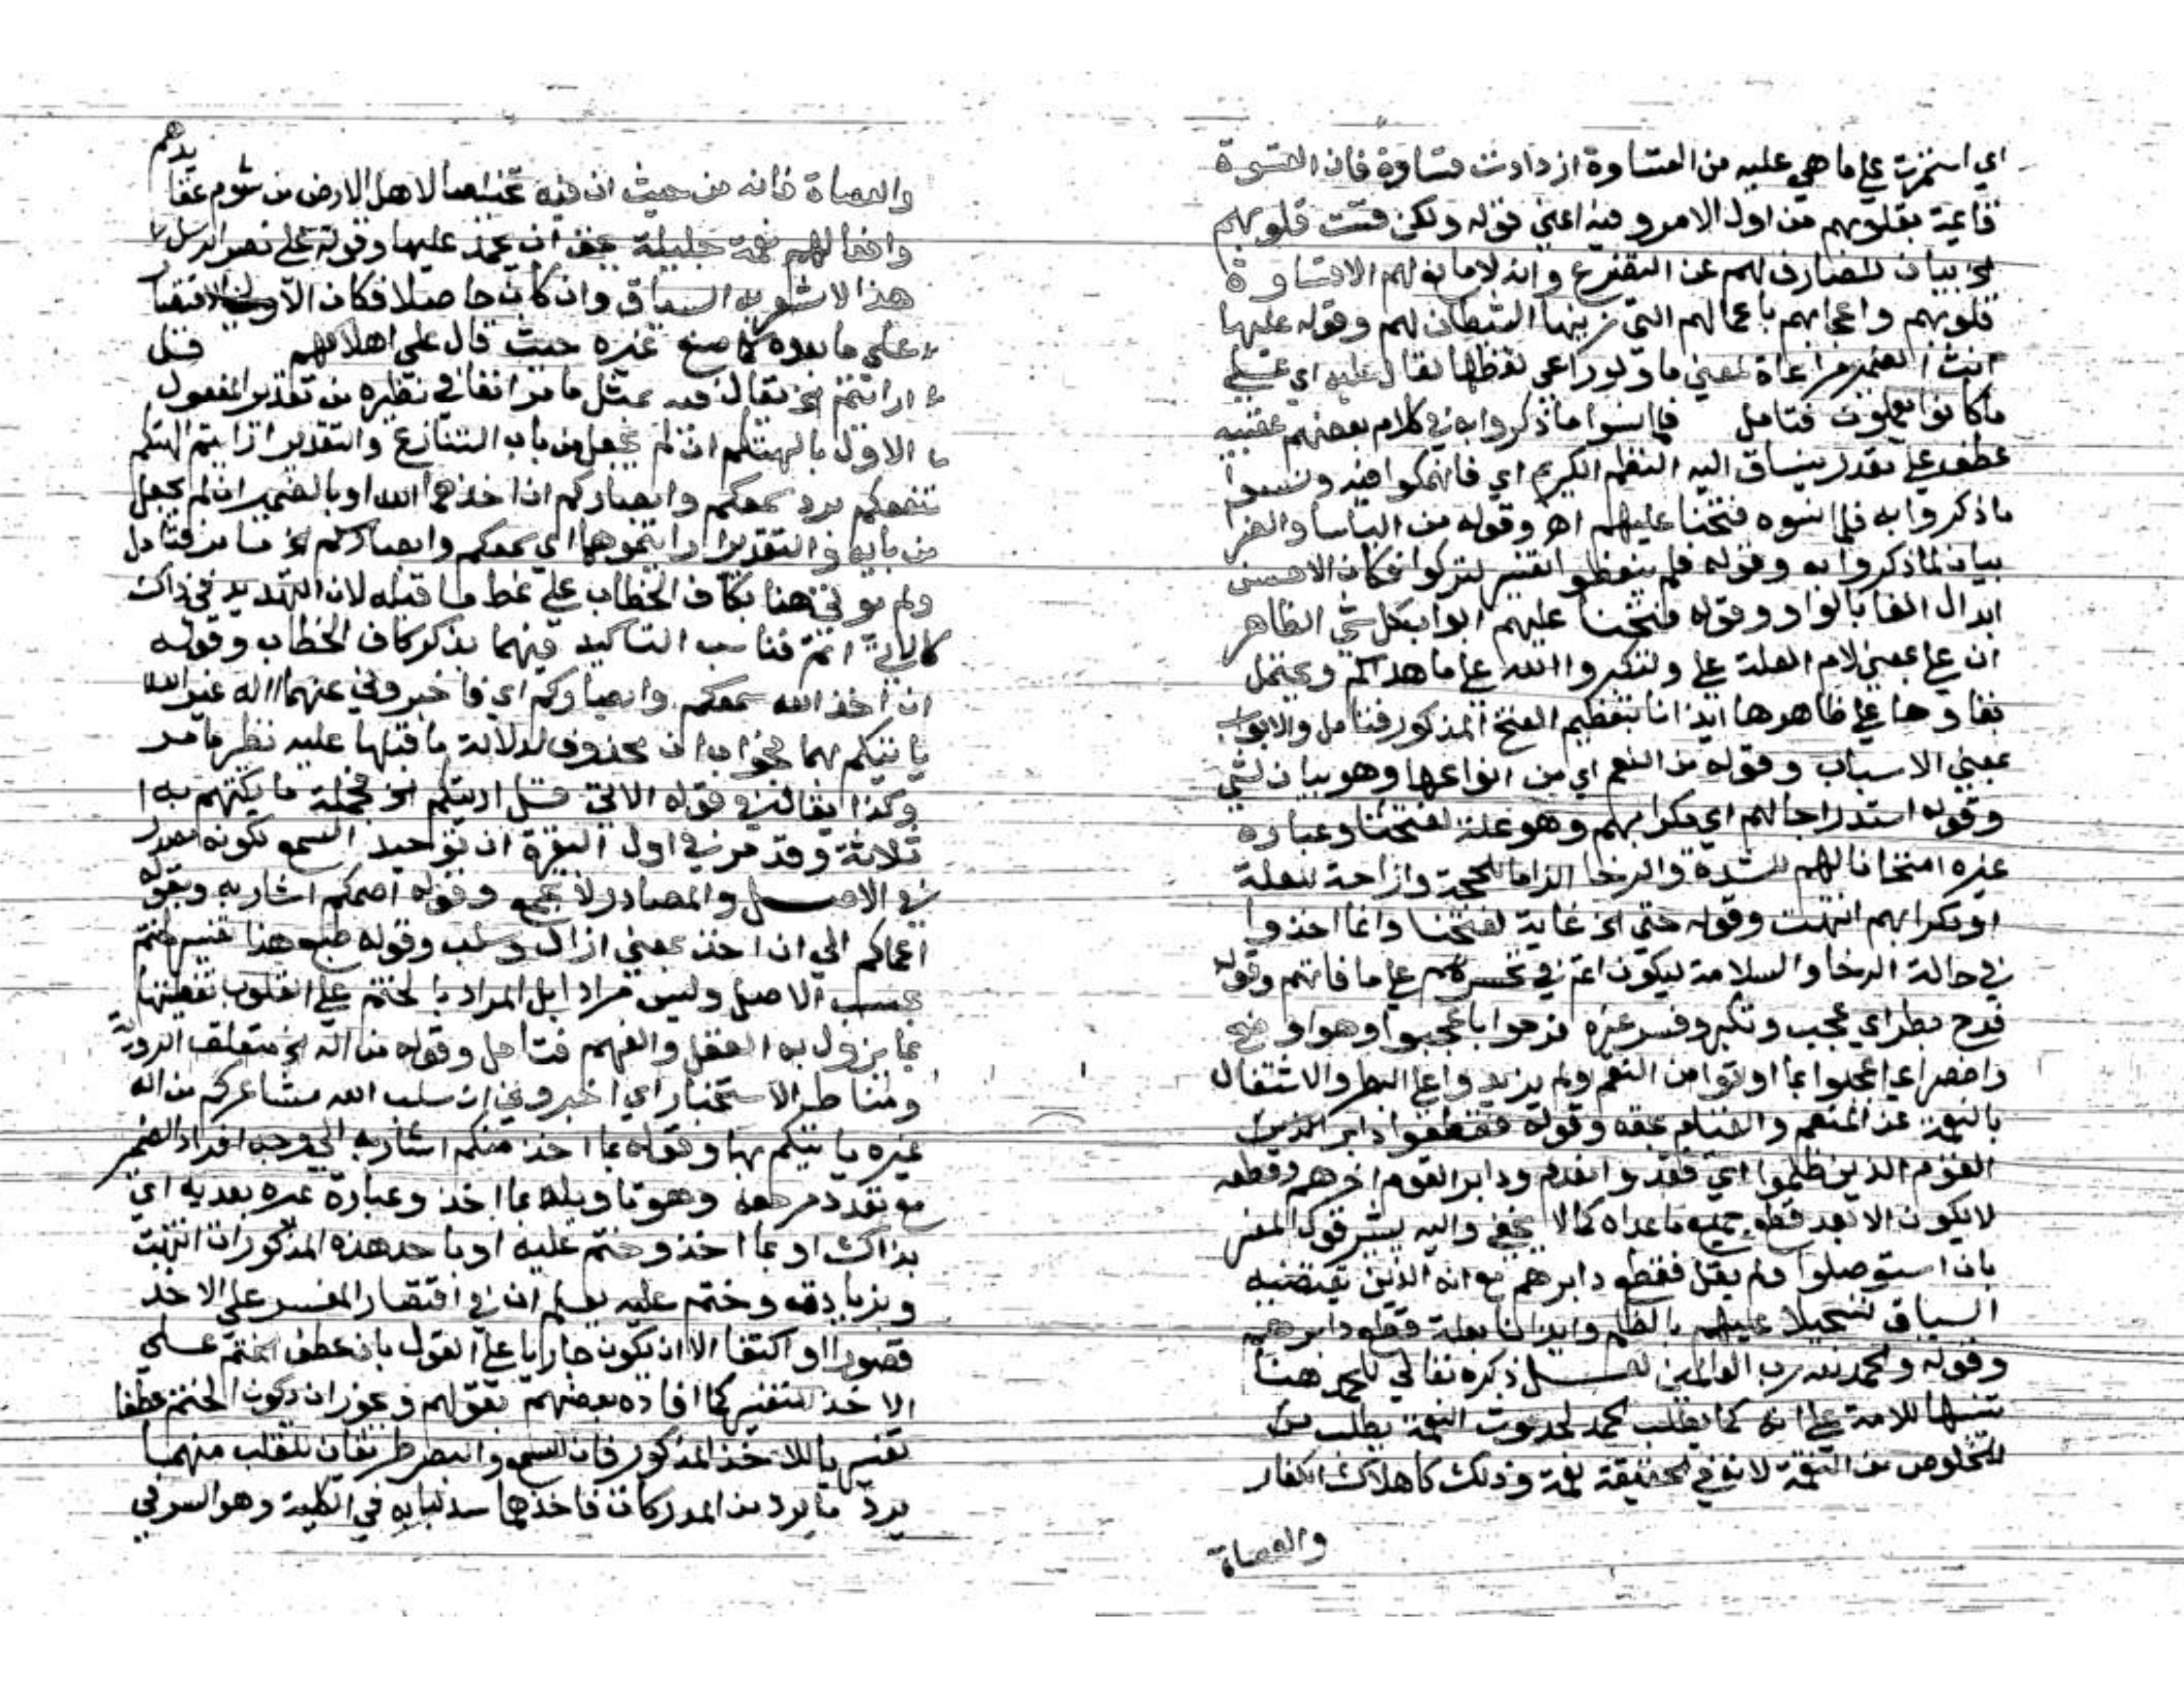 اي استمرت علي ما هي عليه من القساوة ازدادت قساوة فان القسوة
قائمة بقلوبهم من اول الامر وفيه اعني قوله ولكن قست قلوبهم
الخ بيان للصارف لهم عن التضرع وانه لا مانع لهم الا قساوة
قلوبهم واعجابهم باعمالهم التي زينها الشيطان لهم وقوله عليها
انث الضمير مراعاة لمعني ما ولو راعي لفظها لقال عليه اي علي
ما كانوا يعملون فتامل فلما نسوا ما ذكروا به في كلام بعضهم
عطف علي مقدر ينساق اليه النظم الكريم اي فانهمكوا فيه ونسوا
ما ذكروا به فلما نسوه فتحنا عليهم اه وقوله من الباسا والضر
بيان لما ذكروا به وقوله فلم يتعظوا تفسير لتركوا فكان الاحسن
ابدال الفا بالواو وقوله فتحنا عليهم ابواب كل شي الظاهر
ان علي بمعني لام العلة علي ولتكبروا الله علي ما هداكم ويحتمل
بقاوها علي ظاهرها ايذانا بتعظيم الفتح المذكور فتامل والابواب
بمعني الاسباب وقوله من النعم اي من انواعها وهو بيان لشي
وقوله استدراجا لهم اي مكرا بهم وهو علة لفتحنا وعبارة
غيره امتحانا لهم بالشدة والرخا الزاما للحجة وازاحة للعلة
او مكرا بهم انتهت وقوله حتي الخ غاية لفتحنا وانما اخذوا
في حالة الرخا والسلامة ليكون اعم في تحسرهم علي ما فاتهم وقوله
فرح بطر اي عجب وتكبر وفسر غيره فرحوا باعجبوا وهو
اي اعجبوا بما اوتوا من النعم ولم يزيدوا علي البطر والاشتغال
بالنعم عن المنعم والقيام بحقه وقوله فقطعوا دابر الذين
القوم الذين ظلموا اي فقدوا ودابر القوم اخرهم وقطعه
لا يكون الا بعد قطع جميع ما عداه كما لا يخفي واليه يشير قول المفسر
بان استوصلوا ولم يقل فقطع دابرهم مع انه الذين يقتضيه
السياق تسجيلا عليهم بالظلم وايذانا بعلة قطع دابرهم
وقوله والحمد لله رب العالمين لعل ذكره تعالي للحمد هنا
تنبيها للامة علي انه كما يطلب الحمد لحدوث النعمة يطلب من
للخلوص من النقمة لانه في الحقيقة نعمة وذلك كاهلاك الكفار
والعصاة
والعصاة فانه من حيث ان فيه تخليصا لاهل الارض من شوم عقا
يدهم
وافعالهم نعمة جليلة يحق ان يحمد عليها وقوله علي نصر الرسل
هذا لا شعور به السياق وان كان حاصلا فكان الاولي الاقتصا
ر علي ما بعده كما صنع غيره حيث قال علي اهلاكهم قل
ارايتم الخ يقال فيه بمثل ما مر انفا في نظيره من تقدير المفعول
الاول بالهتكم ان لم يجعل من باب التنازع والتقدير ارايتم الهتكم
تنفعكم برد سمعكم وابصاركم ان اخذهما الله او بالضمير ان لم يجعل
من بابه والتقدير ارايتموهما اي سمعكم وابصاركم الخ ما مر فتامل
ولم يوتي هنا بكاف الخطاب علي نمط ما قبله لان التهديد في ذاك
كالاتي اتم فناسب التاكيد فيهما بذكر كاف الخطاب وقوله
ان اخذ الله سمعكم وابصاركم اي فاخبروني عنهما االه غير الله
ياتيكم بهما فجواب ان محذوف لدلالة ما قبلها عليه نظر ما مر
وكذا يقال في قوله الاتي قل ارايتكم الخ فجملة ما يكتهم به
ثلاثة وقد مر في اول البقرة ان توحيد السمع لكونه مصدر
في الاصل والمصادر لا تجمع وقوله اصمكم اشار به وبقوله
اعماكم الي ان اخذ بمعني ازال وسلب وقوله طبع هذا تفسير لختم
بحسب الاصل وليس مرادا بل المراد بالختم علي القلوب تغطيتها
بما يزول به العقل والفهم فتامل وقوله من اله الخ متعلق الروية
ومناط الاستخبار اي اخبروني ان سلب الله مشاعركم من اله
غيره ياتيكم بها وقوله بما اخذ منكم اشار به الي وجه افراد الضمير
مع تعدد مرجعه وهو تاويله بما اخذ وعبارة غيره بعد به اي
بذاك او بما اخذ وختم عليه او باحد هذه المذكورات انتهت
وبزيادته وختم عليه يعلم ان في اقتصار المفسر علي الاخذ
قصورا او اكتفا الا ان يكون جاريا علي القول بان عطف الختم علي
الاخذ للتفسير كما افاده بعضهم بقولهم ويجوز ان يكون الختم عطفا
تفسيريا للاخذ المذكور فان السمع والبصر طريقان للقلب منهما
يرد ما يرد من المدركات فاخذهما سد لبابه في الكلية وهو السر في